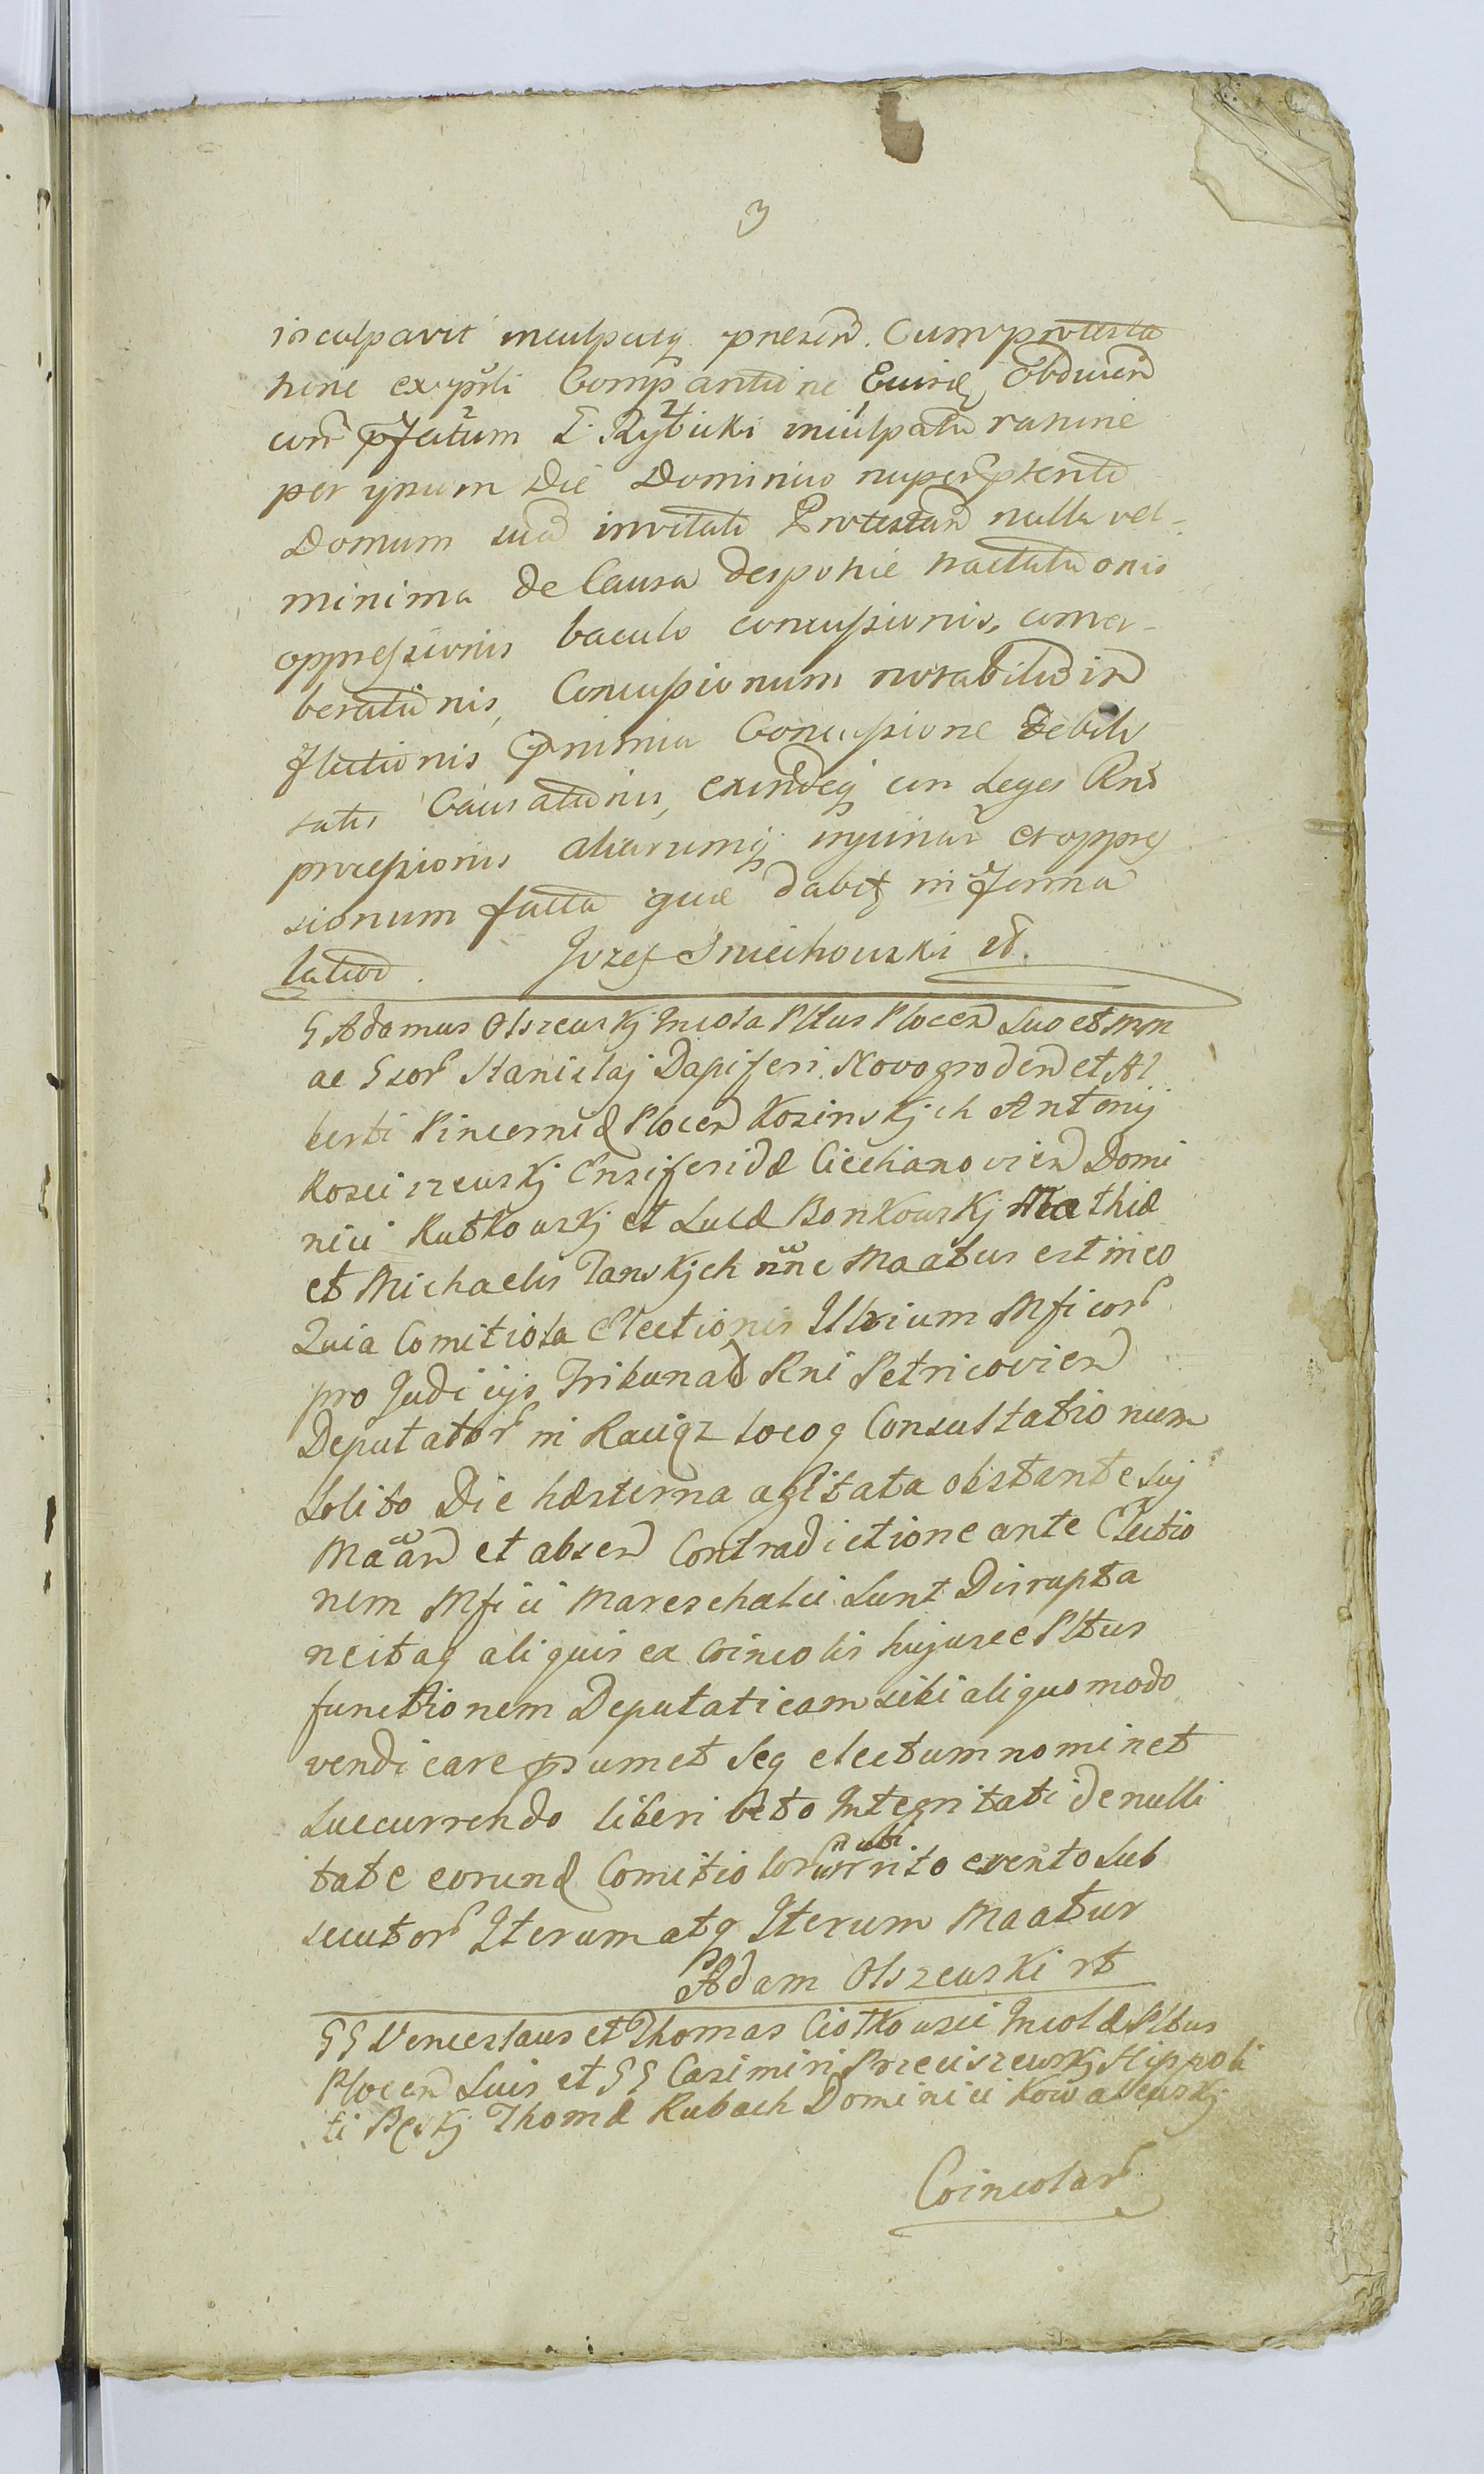 3
inculpavit inculpatq presen. Cum protesta
tiõne ex parti Comparitiõne Eviræ Obducen
con pfatum G. Rybicki inculpatũ ratiõne
per ipsum Die Dominico nuper pterito
Domum suã invitati Protestan nulla vel
minima de Causa despotiæ tractationis
oppressionis baculo concussionis, conver-
berationis, Concussionum notabilium in
flictionis P nimia Concussione debili
tatis Causationis, exindeq con Leges Rni
processionis aliarumq injuriar et oppres
sionum facta quæ dabit in Forma
latiori. Jozef Smiechowski
G Adamus Olszewskj Incola Pltus Plocen Suo et nõm
ae Gsor Stanislaj Dapiferi Novogroden et Al
berti Pincernid Plocen Kosinskjch Antonij
Kosciszewskj Ensiferidæ Ciechanovien Domi
nici Rutkowskj et Lucæ Bonkowskj Mathiæ
et Michaelis Tanskjch nne Maatus est in eo
Quia Comitiola Electionis Illrium Mficor
pro Judicijs Tribunal Rni Petricovien
Deputator in Raciąz locoq Consultationum
Solito Die hæsterna agitata obstante Suj
Maan et absen Contradictione ante Electio
nem Mfici Mareschalci Sunt Disrupta
neitaq aliquis ex Coincolis hujusce Pltus
functionem Deputaticam sibi aliquo modo
vendicare psumet Seq electum nominet
Succurrendo liberi veto Integritati de nulli
tate eorund Comitiolor irrito evento Sub
secutor Iterum atq Iterum Maatur
Adam Olszewski rt
GG Venceslaus et Thomas Ciołkowscii Incolæ Pltus
Plocen Suis et GG Casimiri Przeciszewskj Hippoli
ti Bęskj Thomæ Rubach Dominici Kowalewskj
Coincolar